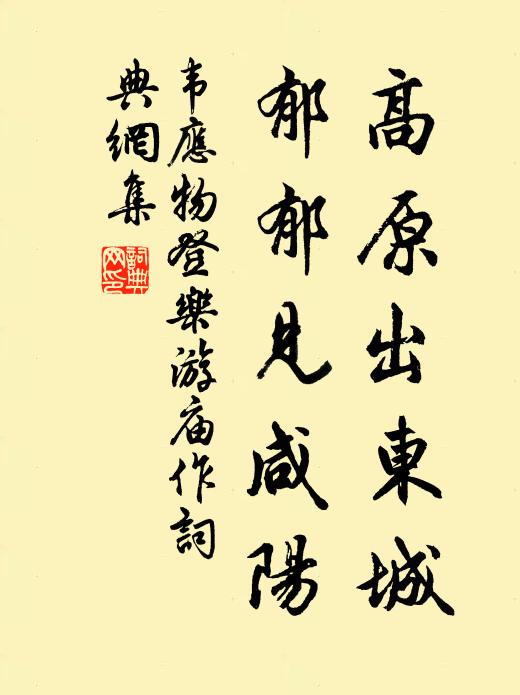 高原出東城
郁郁見咸陽
韦應物登樂游庙作詞
典網集
詞典
网印